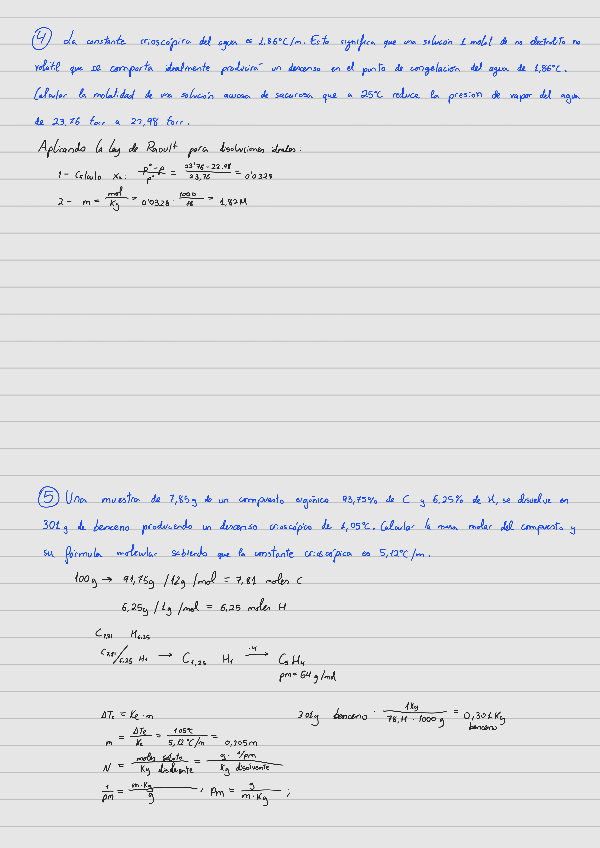 4 La constante crioscópica del agua es 1,86°C/m. Esto significa que una solución 1 molal de no electrolito no
volátil que se comporta idealmente producirá un descenso en el punto de congelación del agua de 1,86°C.
Calcular la molalidad de una solución acuosa de sacarosa que a 25°C reduce la presión de vapor del agua
de 23,76 torr a 22,98 torr.
Aplicando la Ley de Raoult para disoluciones ideales:
1- Calculo Xs: p°-p / p° = 23'76-22.98 / 23,76 = 0'0328
2- m = mol / Kg = 0'0328 · 1000 / 18 = 1,82M
5 Una muestra de 7,85g de un compuesto orgánico 93,75% de C y 6,25% de H, se disuelve en
301g de benceno produciendo un descenso crioscópico de 1,05°C. Calcular la masa molar del compuesto y
su fórmula molecular sabiendo que la constante crioscópica es 5,12°C/m.
100g → 93,75g /12g/mol = 7,81 moles C
6,25g /1g/mol = 6,25 moles H
C7,81 H6,25
C7,81/6,25 H1 → C1,25 H1 ·4→ C5H4
pm=64g/mol
ΔTc = Kc·m 301g benceno · 1Kg / 78,11·1000g = 0,301Kg benceno
m = ΔTc / Kc = 1'05°C / 5,12°C/m = 0,205m
N = moles soluto / Kg disolvente = g·1/pm / Kg disolvente
1 / pm = m·Kg / g ; Pm = g / m·Kg ;